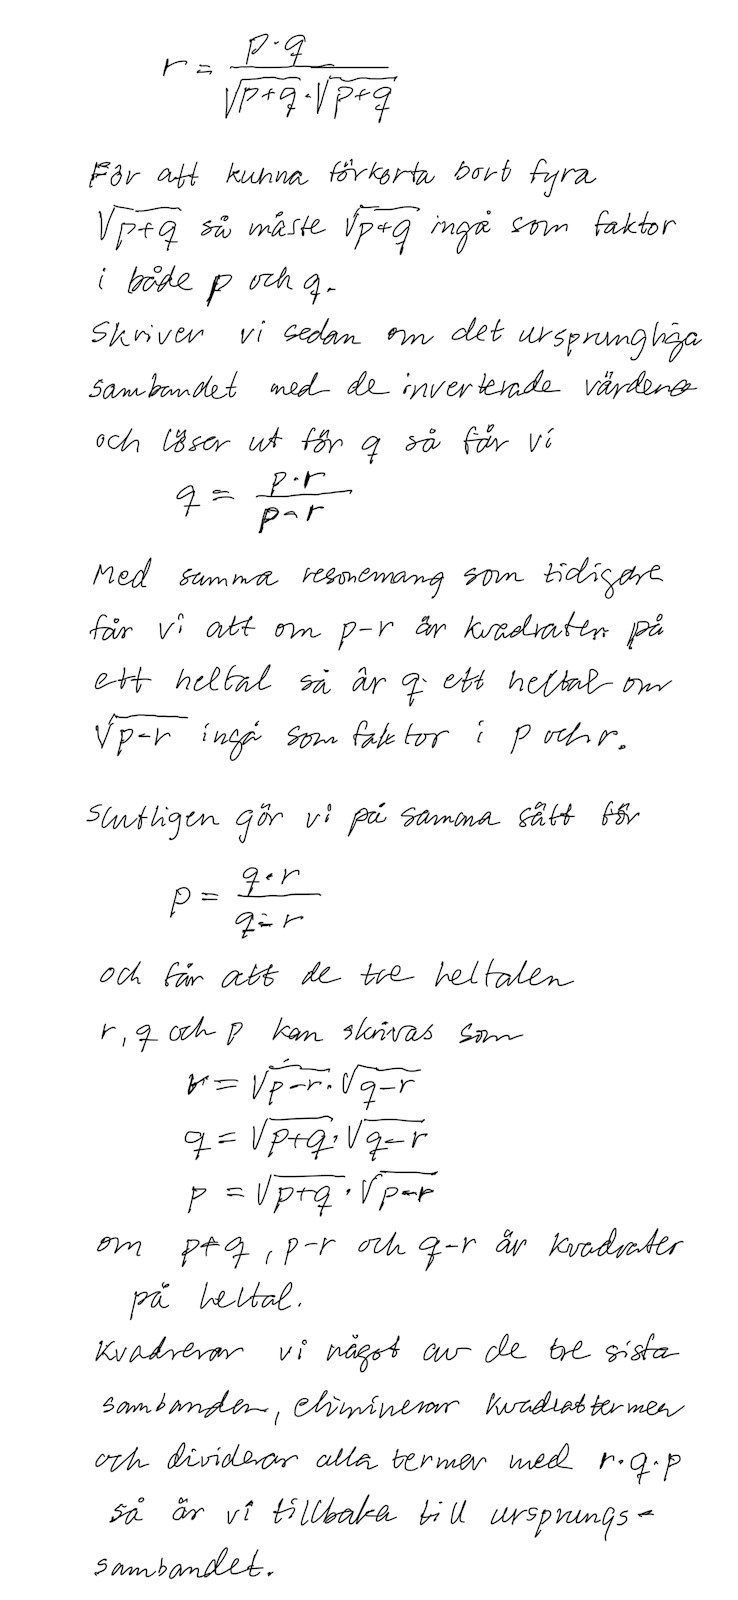 r = p·q / √p+q · √p+q
För att kunna förkorta bort fyra
√p+q så måste √p+q ingå som faktor
i både p och q.
Skriver vi sedan om det ursprungliga
sambandet med de inverterade värdena
och löser ut för q så får vi
q = p·r / p-r
Med samma resonemang som tidigare
får vi att om p-r är kvadraten på
ett heltal så är q ett heltal om
√p-r ingå som faktor i p och r.
Slutligen gör vi på samma sätt för
p = q·r / q-r
och får att de tre heltalen
r, q och p kan skrivas som
r = √p-r · √q-r
q = √p+q · √q-r
p = √p+q · √p-r
om p+q, p-r och q-r är kvadrater
på heltal.
Kvadrerar vi något av de tre sista
sambanden, eliminerar kvadrattermen
och dividerar alla termer med r·q·p
så är vi tillbaka till ursprungs-
sambandet.